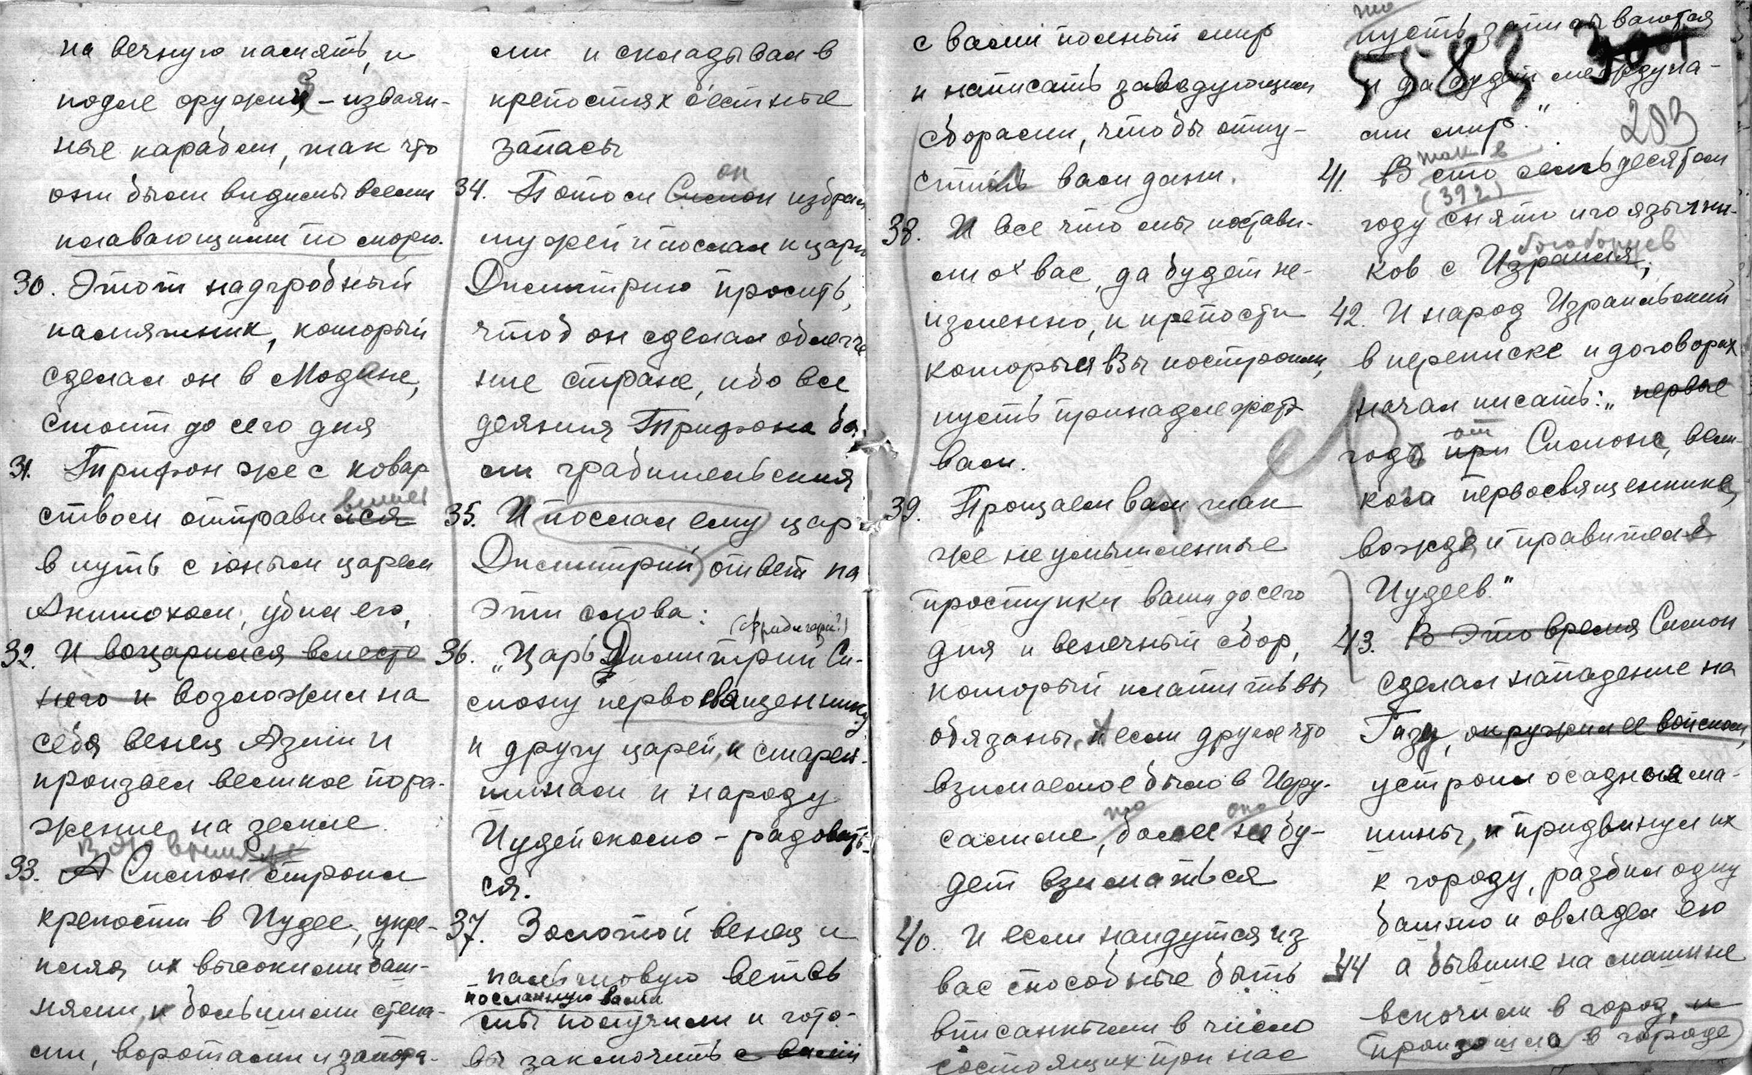 на вечную память, и
подле оружий – изваян-
ные карабли, так что
они были видимы всеми
плавающими по морю.
30. Этот надгробный
памятник, который
сделал он в Модине,
стоит до сего дня
31. Трифон же с ковар
ством отправился
в путь с юным царем
Антиохом, убил его,
32. И воцарился вместо
него и возложил на
себя венец Азии и
произвел великое пора-
жение на земле.
В это время
33. А Симон строил
крепости в Иудее, укре-
пляя их высокими баш-
нями, и большими стена-
ми, воротами и запора-
ми и складывал в
крепостях съестные
запасы
он
34. Потом Симон избрал
мужей и послал к царю
Димитрию просить,
чтоб он сделал облегче
ние стране, ибо все
деяния Трифона бы
ли грабительския
35. И послал ему царь
Димитрий ответ на
эти слова:
36. „Царь Димитрий Си-
мону первосвященнику
и другу царей, и старей-
шинам и народу
Иудейскому – радовать-
ся.
37. Золотой венец и
пальмовую ветвь
посланную вами
мы получили и гото-
вы заключить с вами
с вами полный мир
и написать заведующим
сборами, чтобы отпу-
стили вам дани.
38. И все что мы постави-
ли о вас, да будет не-
изменно, и крепости
которыя вы построили,
пусть принадлежат
вам.
39. Прощаем вам так
же неумышленные
проступки ваши до сего
дня и венечный сбор,
который платить вы
обязаны, и если другое что
взимаемое было в Иеру-
салиме, то более оно не бу-
дет взиматься
40. И если найдутся из
вас способные быть
вписанными в число
состоящих при нас
то
пусть записываются
5583
и да будет между на-
ми мир."
203
так в
41. В сто семьдесятом
(392)
году снято иго языч-ни-
богоборцев
ков с Израиля,
42. И народ Израильский
в переписке и договорах
начал писать: „первые
от
года при Симоне, вели
кого первосвященника,
вождя и правителя
Иудеев."
43. В это время Симон
сделал нападение на
Газу, окружил ее войском,
устроил осадные ма-
шины, и придвинул их
к городу, разбил одну
башню и овладел ею
44 а бывшие на машине
вскочили в город, и
произошло в городе